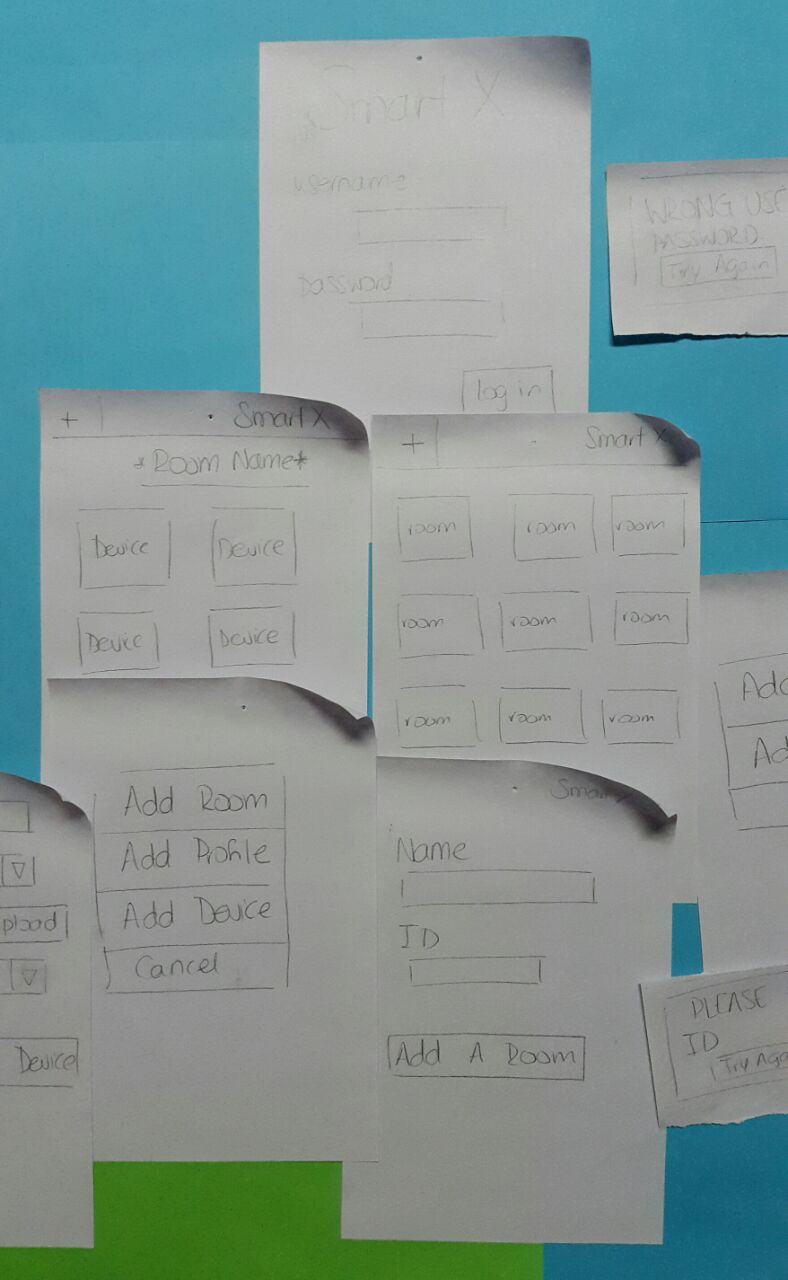 Smart X
username
password
log in
WRONG USE
PASSWORD
Try Again
+ Smart X
*Room Name*
Device Device
Device Device
+ Smart X
room room room
room room room
room room room
Add Room
Add Profile
Add Device
Cancel
Smart
Name
ID
Add A Room
pload
Device
Add
Ad
PLEASE
ID
Try Aga